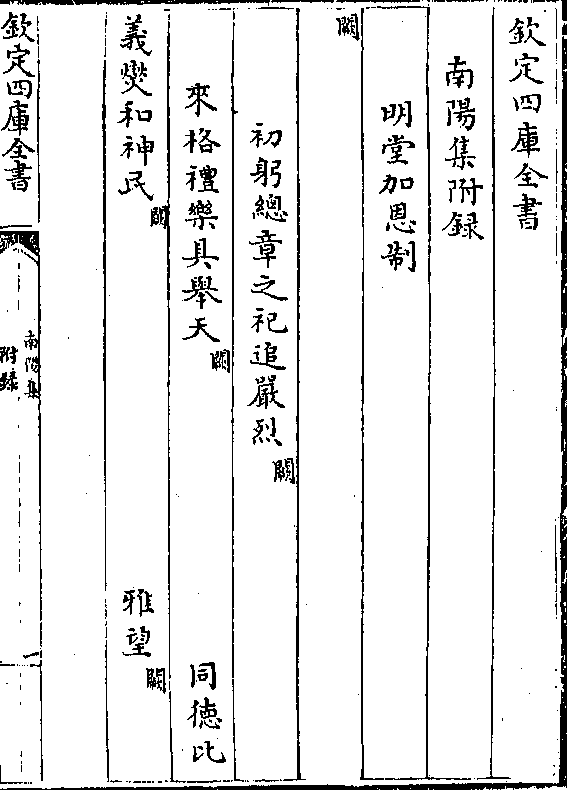 欽定四庫全書
南陽集附録
明堂加恩制
闕
初躬總章之祀追嚴烈闕
來格禮樂具舉天闕　同德比
義爕和神民闕　雅望闕
欽定四庫全書
南陽集
附録
一